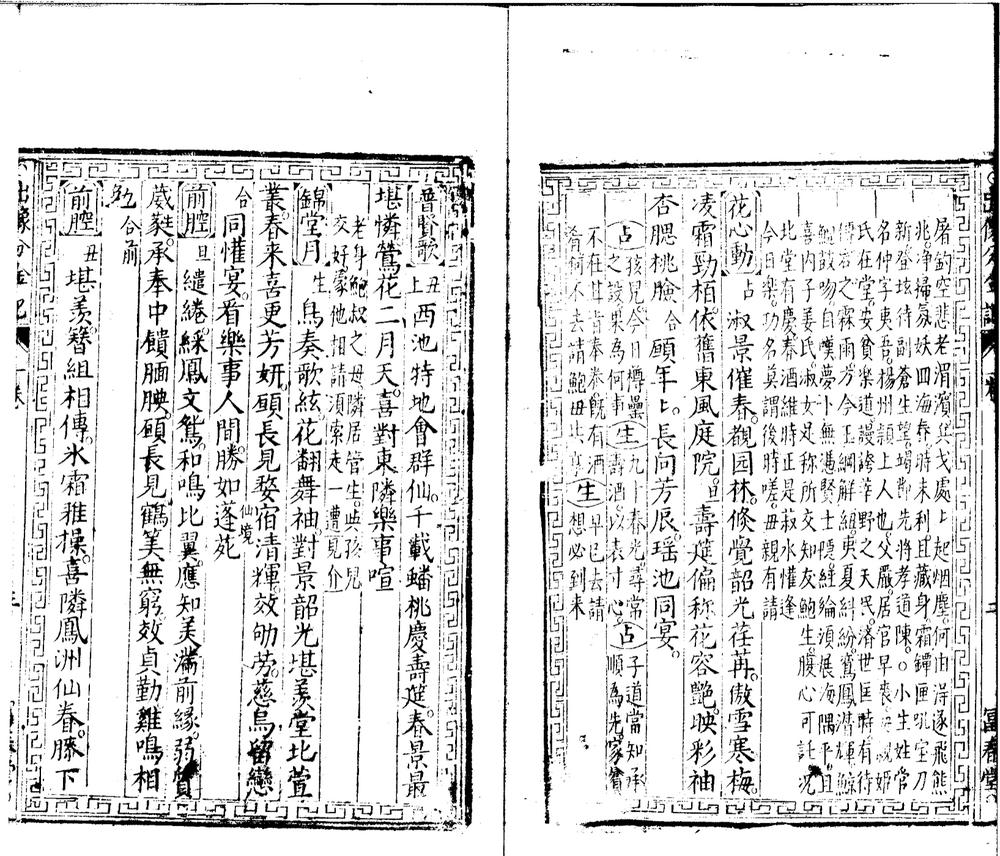 屠釣空悲老渭濱兵戈處上起烟塵何由得逐飛熊
兆净掃氛妖四海春時未利且藏身霜鐔匣吼室刀
新登垓待副蒼生望竭節先將孝道陳○小生姓常
名仲字夷吾楊州潁上人也父嚴居官早喪母親姬
氏在堂安貧樂道謾誇莘野之天民濟世匡時有待
傅岩之霖雨方今玉綱解組夷夏糾紛鸞鳳潛輝鯨
鯢鼓吻自嘆夢卜無憑賢士隱經綸須展海隅平且
喜內子姜氏淑女是称所交知友鮑生腹心可託况
此堂有慶春酒維時正是菽水懽逢
今日樂功名莫謂後時嗟母親有請
花心動 占 淑景催春觀园林倏覺韶光荏苒傲雪寒梅
凌霜勁栢依舊東風庭院旦壽筵偏称花容艷映彩袖
杏腮桃臉合頋年上長向芳辰瑶池同宴
占 孩兒今日樽罍之設果為何事 生 九十春光尋常壽酒以表寸心 占 子道當知承順為先家貧
不在甘肯奉養既有酒肴何不去請鮑母共享 生 早已去請想必到来
普賢歌 丑上 西池特地會群仙千載蟠桃慶壽筵春景最
堪憐鶯花二月天喜對東隣樂事喧
老身鮑叔之母隣居管生與孩兒交好蒙他相請須索走一遭見介
錦堂月 生 鳥奏歌絃花翻舞袖對景韶光堪羨堂北萱
叢春来喜更芳妍頋長見婺宿清輝效劬旁慈烏留戀
合 同懽宴看樂事人間勝如蓬苑 仙境
前腔 旦 繾綣綵鳳文鴛和鳴比翼應知美滿前緣弱質
葳蕤承奉中饋腼腆頋長見鶴筭無窮效貞勤雞鳴相
勉 合前
前腔 丑 堪羨簪組相傳氷霜雅操喜隣鳳洲仙眷膝下
富春堂